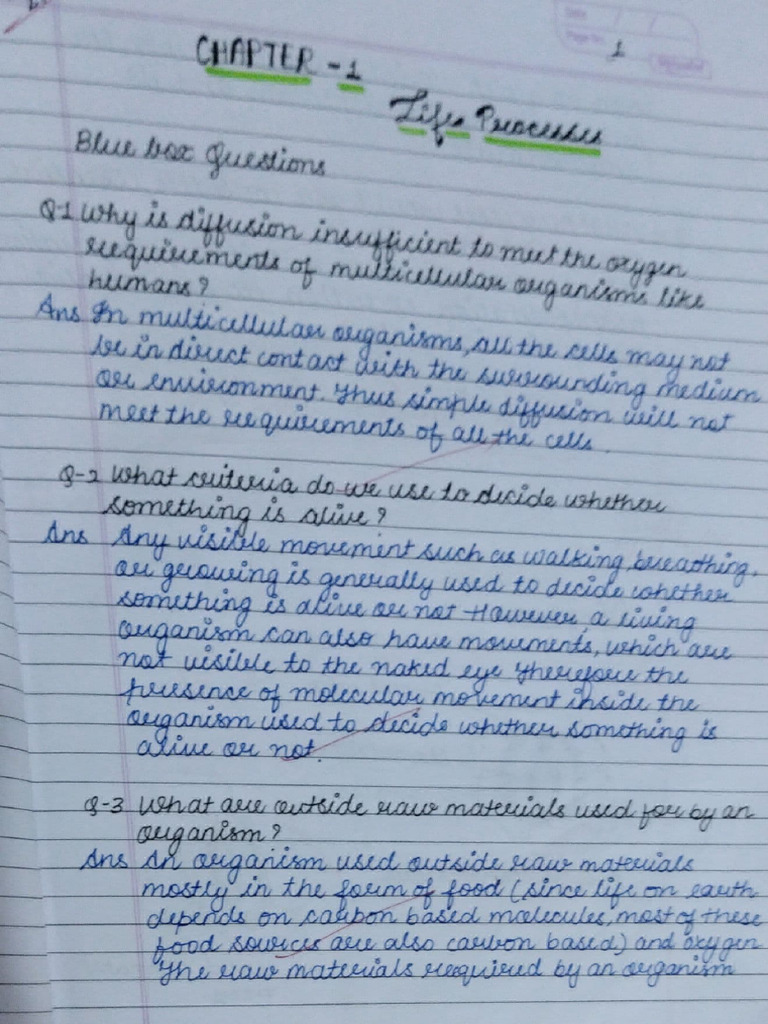 1
CHAPTER - 1
Life Processes
Blue box Questions
Q-1 Why is diffusion insufficient to meet the oxygen
requirements of multicellular organisms like
humans?
Ans In multicellular organisms, all the cells may not
be in direct contact with the surrounding medium
or environment. Thus simple diffusion will not
meet the requirements of all the cells.
Q-2 What criteria do we use to decide whether
something is alive?
Ans Any visible movement such as walking, breathing,
or growing is generally used to decide whether
something is alive or not However, a living
organism can also have movements, which are
not visible to the naked eye Therefore the
presence of molecular movement inside the
organism used to decide whether something is
alive or not.
Q-3 What are outside raw materials used for by an
organism?
Ans An organism used outside raw materials
mostly in the form of food (since life on earth
depends on carbon based molecules, most of these
food sources are also carbon based) and oxygen
The raw materials required by an organism